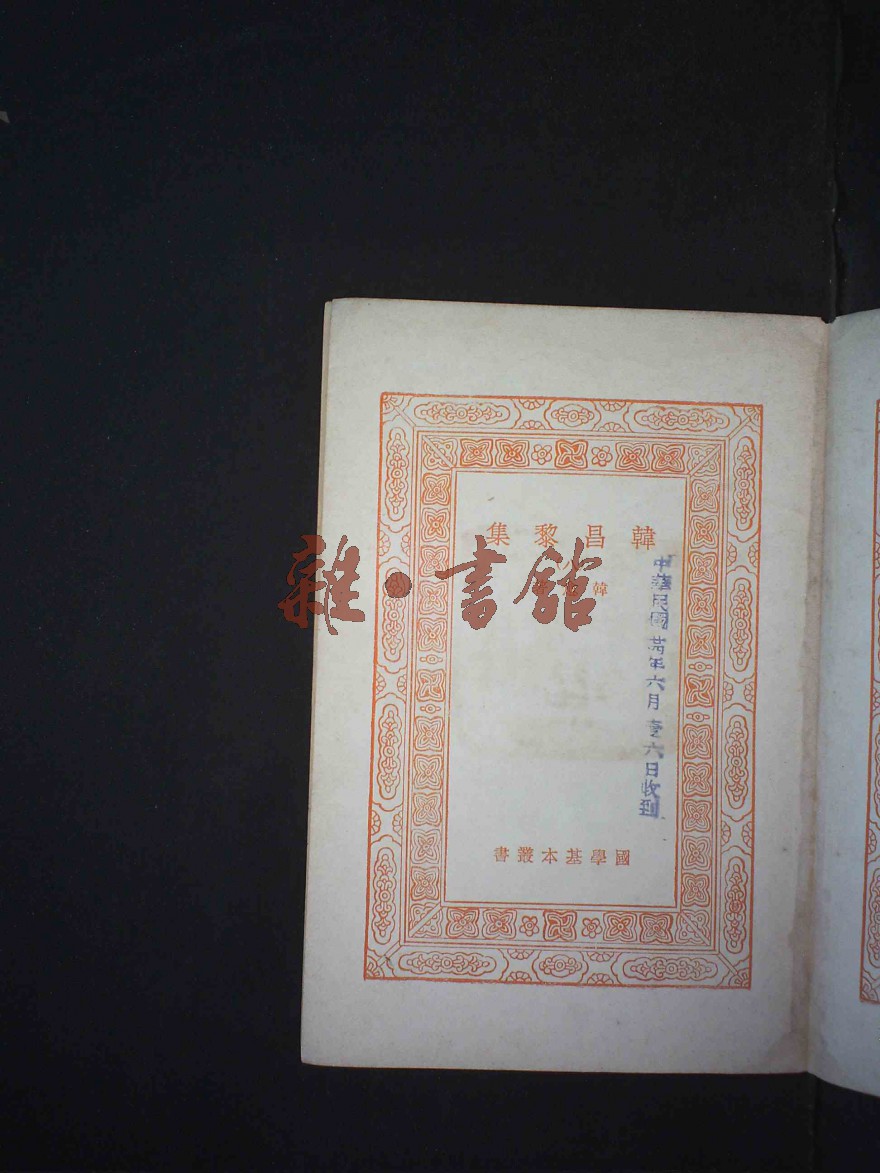 韓昌黎集
韓
國學基本叢書
中華民國 年六月 六日收到
雜·書館